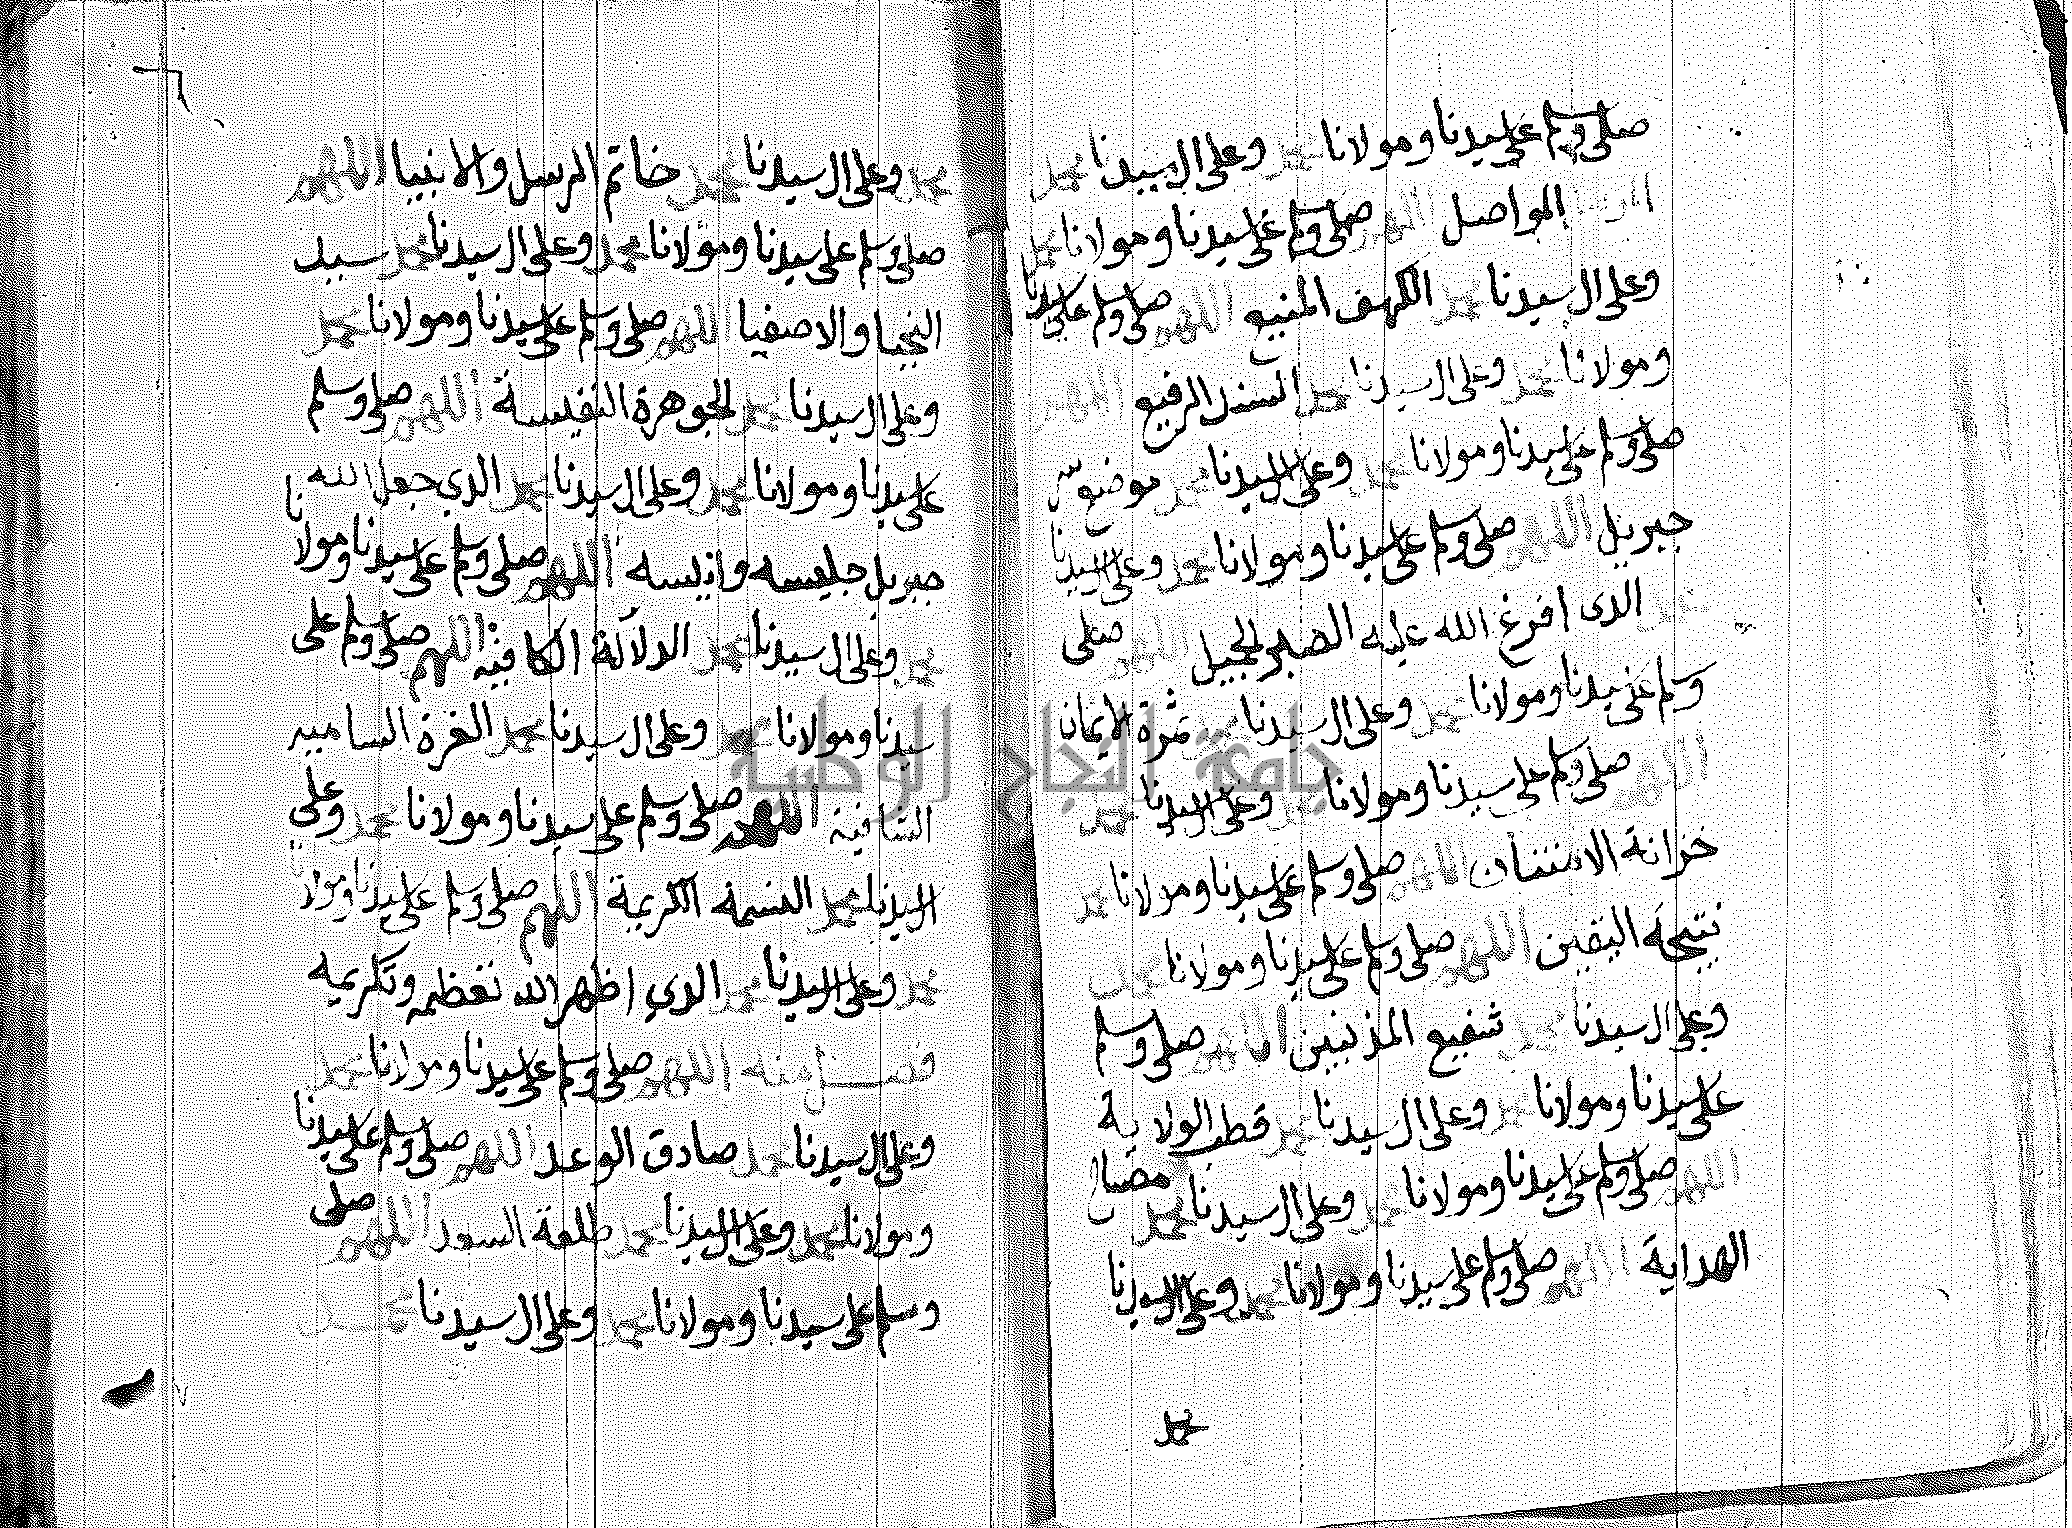 صلى وسلم على سيدنا ومولانا محمد وعلى ال سيدنا محمد
المواصل اللهم صلى وسلم على سيدنا ومولانا محمد
وعلى ال سيدنا محمد الكهف المنيع اللهم صلى وسلم على سيدنا
ومولانا محمد وعلى ال سيدنا محمد السند الرفيع اللهم
صلى وسلم على سيدنا ومولانا محمد وعلى ال سيدنا محمد موضع سر
جبريل اللهم صلى وسلم على سيدنا ومولانا محمد وعلى ال سيدنا
محمد الدى افرغ الله عليه الصبر الجميل اللهم صلى
وسلم على سيدنا ومولانا محمد وعلى ال سيدنا محمد ثمرة الايمان
اللهم صلى وسلم على سيدنا ومولانا محمد وعلى ال سيدنا محمد
خزانة الامتنان اللهم صلى وسلم على سيدنا ومولانا محمد
نتيجة اليقين اللهم صلى وسلم على سيدنا ومولانا محمد
وعلى ال سيدنا محمد شفيع المذنبين اللهم صلى وسلم
على سيدنا ومولانا محمد وعلى ال سيدنا محمد قطب الولاية
اللهم صلى وسلم على سيدنا ومولانا محمد وعلى ال سيدنا محمد مصباح
الهداية اللهم صلى وسلم على سيدنا ومولانا محمد وعلى ال سيدنا
محمد
محمد وعلى ال سيدنا محمد خاتم الرسل والانبيا اللهم
صلى وسلم على سيدنا ومولانا محمد وعلى ال سيدنا محمد سيد
النجبا والاصفيا اللهم صلى وسلم على سيدنا ومولانا محمد
وعلى ال سيدنا محمد الجوهرة النفيسة اللهم صلى وسلم
على سيدنا ومولانا محمد وعلى ال سيدنا محمد الدي جعل الله
جبريل جليسه وانيسه اللهم صلى وسلم على سيدنا ومولانا
محمد وعلى ال سيدنا محمد الدلالة الكافيه اللهم صلى وسلم على
سيدنا ومولانا محمد وعلى ال سيدنا محمد الغرة الساميه
الشافية اللهم صلى وسلم على سيدنا ومولانا محمد وعلي
ال سيدنا محمد النسمة الكريمة اللهم صلى وسلم على سيدنا ومولانا
محمد وعلى ال سيدنا محمد الدي اظهر الله تعظمه وتكريمه
فضل منه اللهم صلى وسلم على سيدنا ومولانا محمد
وعلى ال سيدنا محمد صادق الوعد اللهم صلى وسلم على سيدنا
ومولانا محمد وعلى ال سيدنا محمد طلعة السعد اللهم صلى
وسلم على سيدنا ومولانا محمد وعلى ال سيدنا محمد
جامعة النجاح الوطنية